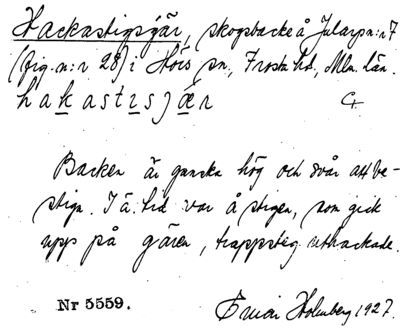 Hackastigsgär, skogsbacke å Jularp n:r 7
(fig. n:r 28) i Hörs sn, Frosta hd, Mlm. län.
hakastɪsjær
Backen är ganska hög och svår att be-
stiga. I ä. tid var å stigen, som gick
upp på gären, trappsteg uthackade.
Nr 5559. Einar Holmberg 1927.